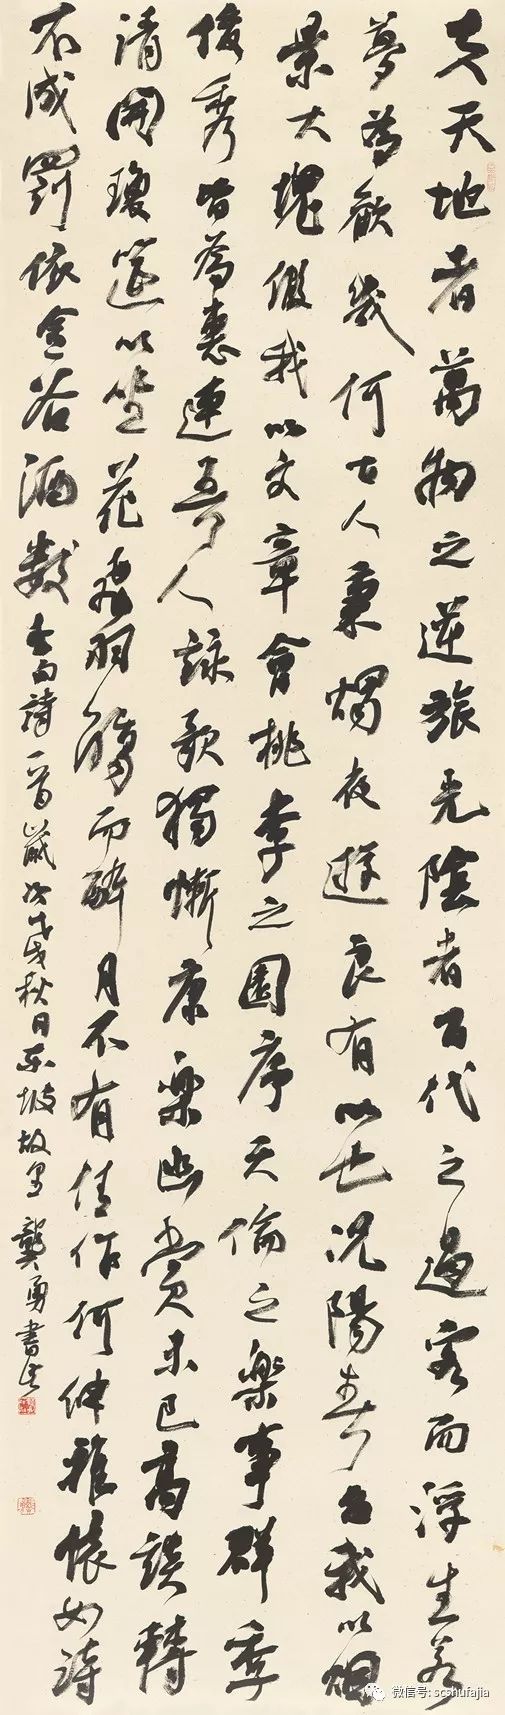 夫天地者萬物之逆旅光陰者百代之過客而浮生若
夢為歡幾何古人秉燭夜遊良有以也況陽春召我以煙
景大塊假我以文章會桃李之園序天倫之樂事群季
俊秀皆為惠連吾人詠歌獨慚康樂幽賞未已高談轉
清開瓊筵以坐花飛羽觴而醉月不有佳作何伸雅懷如詩
不成罰依金谷酒數
李白詩一首歲次戊戌秋日東坡故里龔勇書
微信号: scshufajia